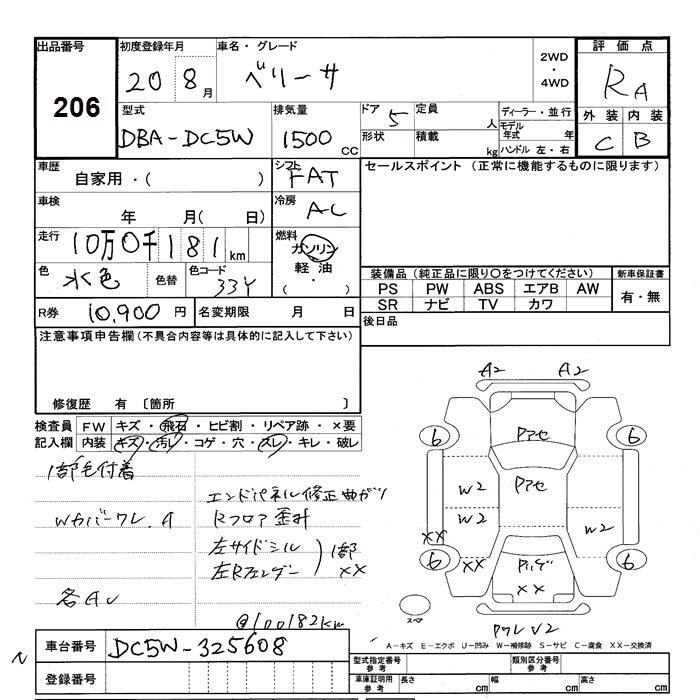 出品番号
206
初度登録年月
20 8月
車名・グレード
ベリーサ
2WD
・
4WD
評価点
RA
外装 内装
C B
型式
DBA-DC5W
排気量
1500 CC
ドア 5
定員 人
形状
積載 kg
ディーラー・並行
モデル年式 年
ハンドル 左・右
車歴
自家用・( )
シフト
FAT
セールスポイント(正常に機能するものに限ります)
車検
年 月( 日)
冷房
AC
走行
10万0千181km
燃料
ガソリン
軽油
( ・ )
色
水色
色替
色コード
33Y
装備品(純正品に限り〇をつけてください)
新車保証書
PS PW ABS エアB AW
SR ナビ TV カワ
有・無
R券 10,900円
名変期限 月 日
後日品
注意事項申告欄(不具合内容等は具体的に記入して下さい)
修復歴 有 〔箇所 〕
検査員 FW キズ・飛石・ヒビ割・リペア跡・×要
記入欄 内装 キズ・汚レ・コゲ・穴・スレ・キレ・破レ
1部毛付着
Wカバーワレ.A
各AU
エンドパネル修正曲ガリ
Rフロア歪み
左サイドシル
左Rフェンダー
1部
××
@100182km
A2 A2
6 6
Pアセ
Pアセ
W2
W2 W2
××
6 ×× 6
××
スペア
PワレV2
A-キズ E-エクボ U-凹み W-補修跡 S-サビ C-腐食 XX-交換済
車台番号
DC5W-325608
登録番号
型式指定番号
参考
類別区分番号
参考
車庫証明用
参考
長さ cm
幅 cm
高さ cm